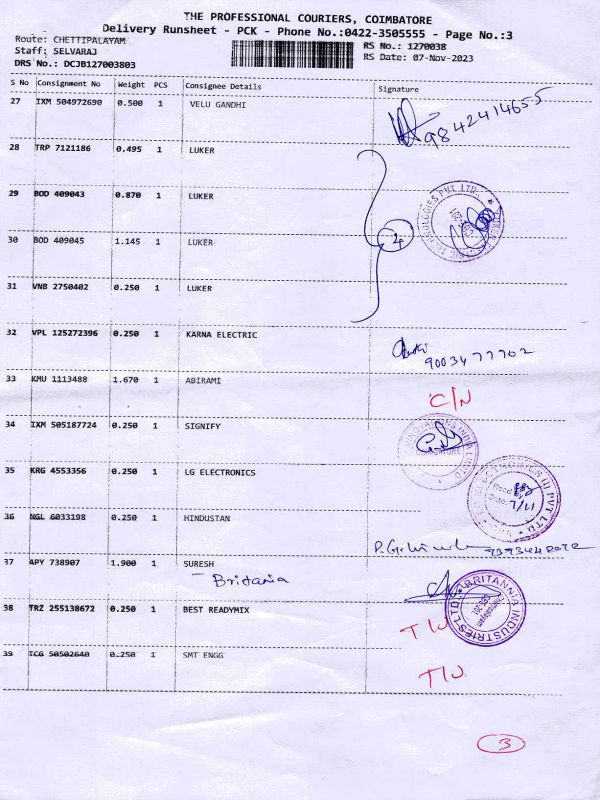 THE PROFESSIONAL COURIERS, COIMBATORE
Delivery Runsheet - PCK - Phone No.:0422-3505555 - Page No.:3
Route: CHETTIPALAYAM
RS No.: 1270038
Staff: SELVARAJ
RS Date: 07-Nov-2023
DRS No.: DCJB127003803
S No Consignment No Weight PCS Consignee Details Signature
27 IXM 504972690 0.500 1 VELU GANDHI
9842414655
28 TRP 7121186 0.495 1 LUKER
29 BOD 409043 0.870 1 LUKER
30 BOD 409045 1.145 1 LUKER
4
31 VNB 2750402 0.250 1 LUKER
32 VPL 125272396 0.250 1 KARNA ELECTRIC
9003477702
33 KMU 1113488 1.670 1 ABIRAMI
C/N
34 IXM 505187724 0.250 1 SIGNIFY
35 KRG 4553356 0.250 1 LG ELECTRONICS
Date: 7/11
36 NGL 6033198 0.250 1 HINDUSTAN
37 APY 738907 1.900 1 SURESH
Britania
38 TRZ 255138672 0.250 1 BEST READYMIX
BRITANNIA INDUSTRIES LTD
T W
39 TCG 50502640 0.250 1 SMT ENGG
T W
3